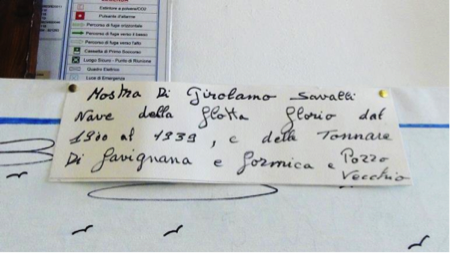 Estintore a polvere/CO2
Pulsante d'allarme
Percorso di fuga orizzontale
Percorso di fuga verso il basso
Percorso di fuga verso l'alto
Cassetta di Primo Soccorso
Luogo Sicuro - Punto di Riunione
Quadro Elettrico
Luce di Emergenza
Mostra Di Girolamo Savalli
Nave della flotta florio dal
1900 al 1939, e delle Tonnare
Di favignana e formica e Pozzo
Vecchio